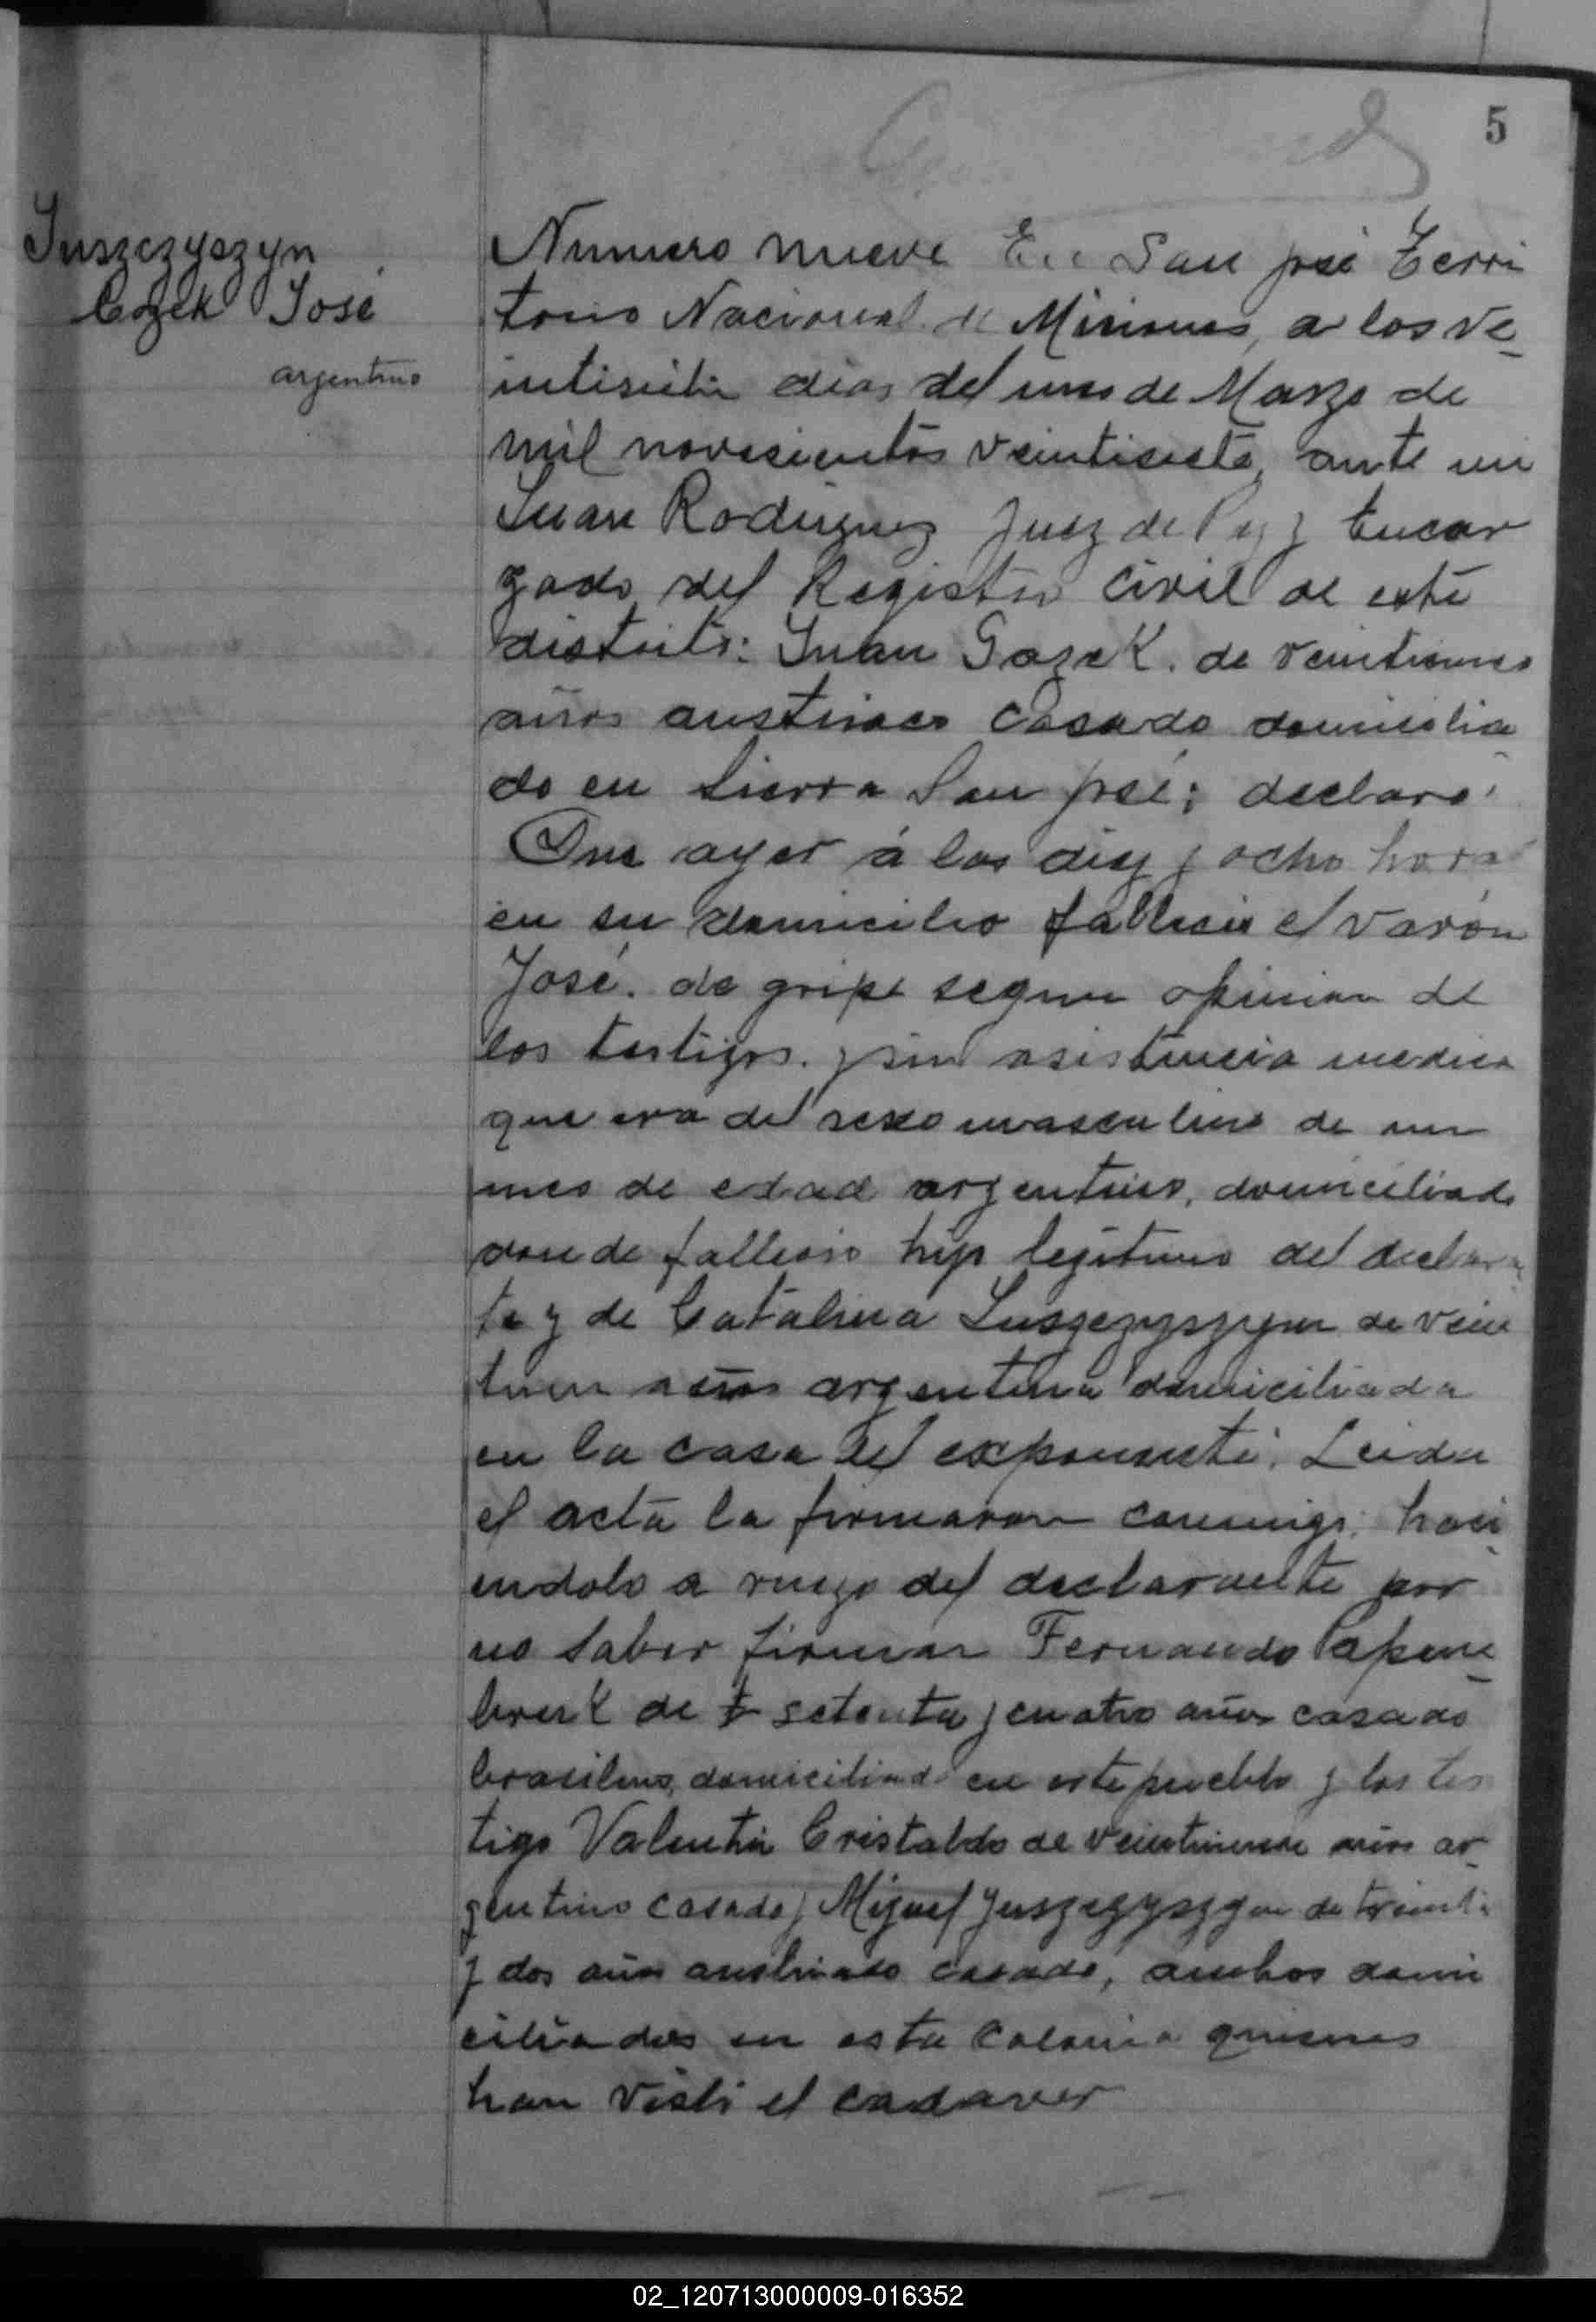 5
Juszczyszyn
Cozek José
argentino
Numero nueve En San José Terri
torio Nacional de Misiones, a los ve
intisiete dias del mes de Marzo de
mil novecientos veintisiete, ante mi
Juan Rodriguez Juez de Paz y Encar
gado del Registro Civil de este
distrito: Juan Gozek. de veinticinco
años austriaco casado domicilia
do en Sierra San José; declaró
Que ayer á las diez y ocho horas
en su domicilio fallecio el varón
José. de gripe segun opinion de
los testigos. y sin asistencia medica
que era del sexo masculino de un
mes de edad argentino, domiciliado
donde fallecio hijo legitimo del declaran
te y de Catalina Juszczyszyn de vein
tiun años argentina domiciliada
en la casa del exponente. Leida
el acta la firmaron conmigo haci
endolo a ruego del declarante por
no saber firmar Fernando Papen
brock de t setenta y cuatro años casado
brasilero, domiciliado en este pueblo y los tes
tigo Valentin Cristaldo de veintinueve años ar
gentino casado y Miguel Juszczyszyn de treinta
y dos años austriaco casado, ambos domi
ciliados en esta Colonia quienes
han visto el cadaver
02_120713000009-016352